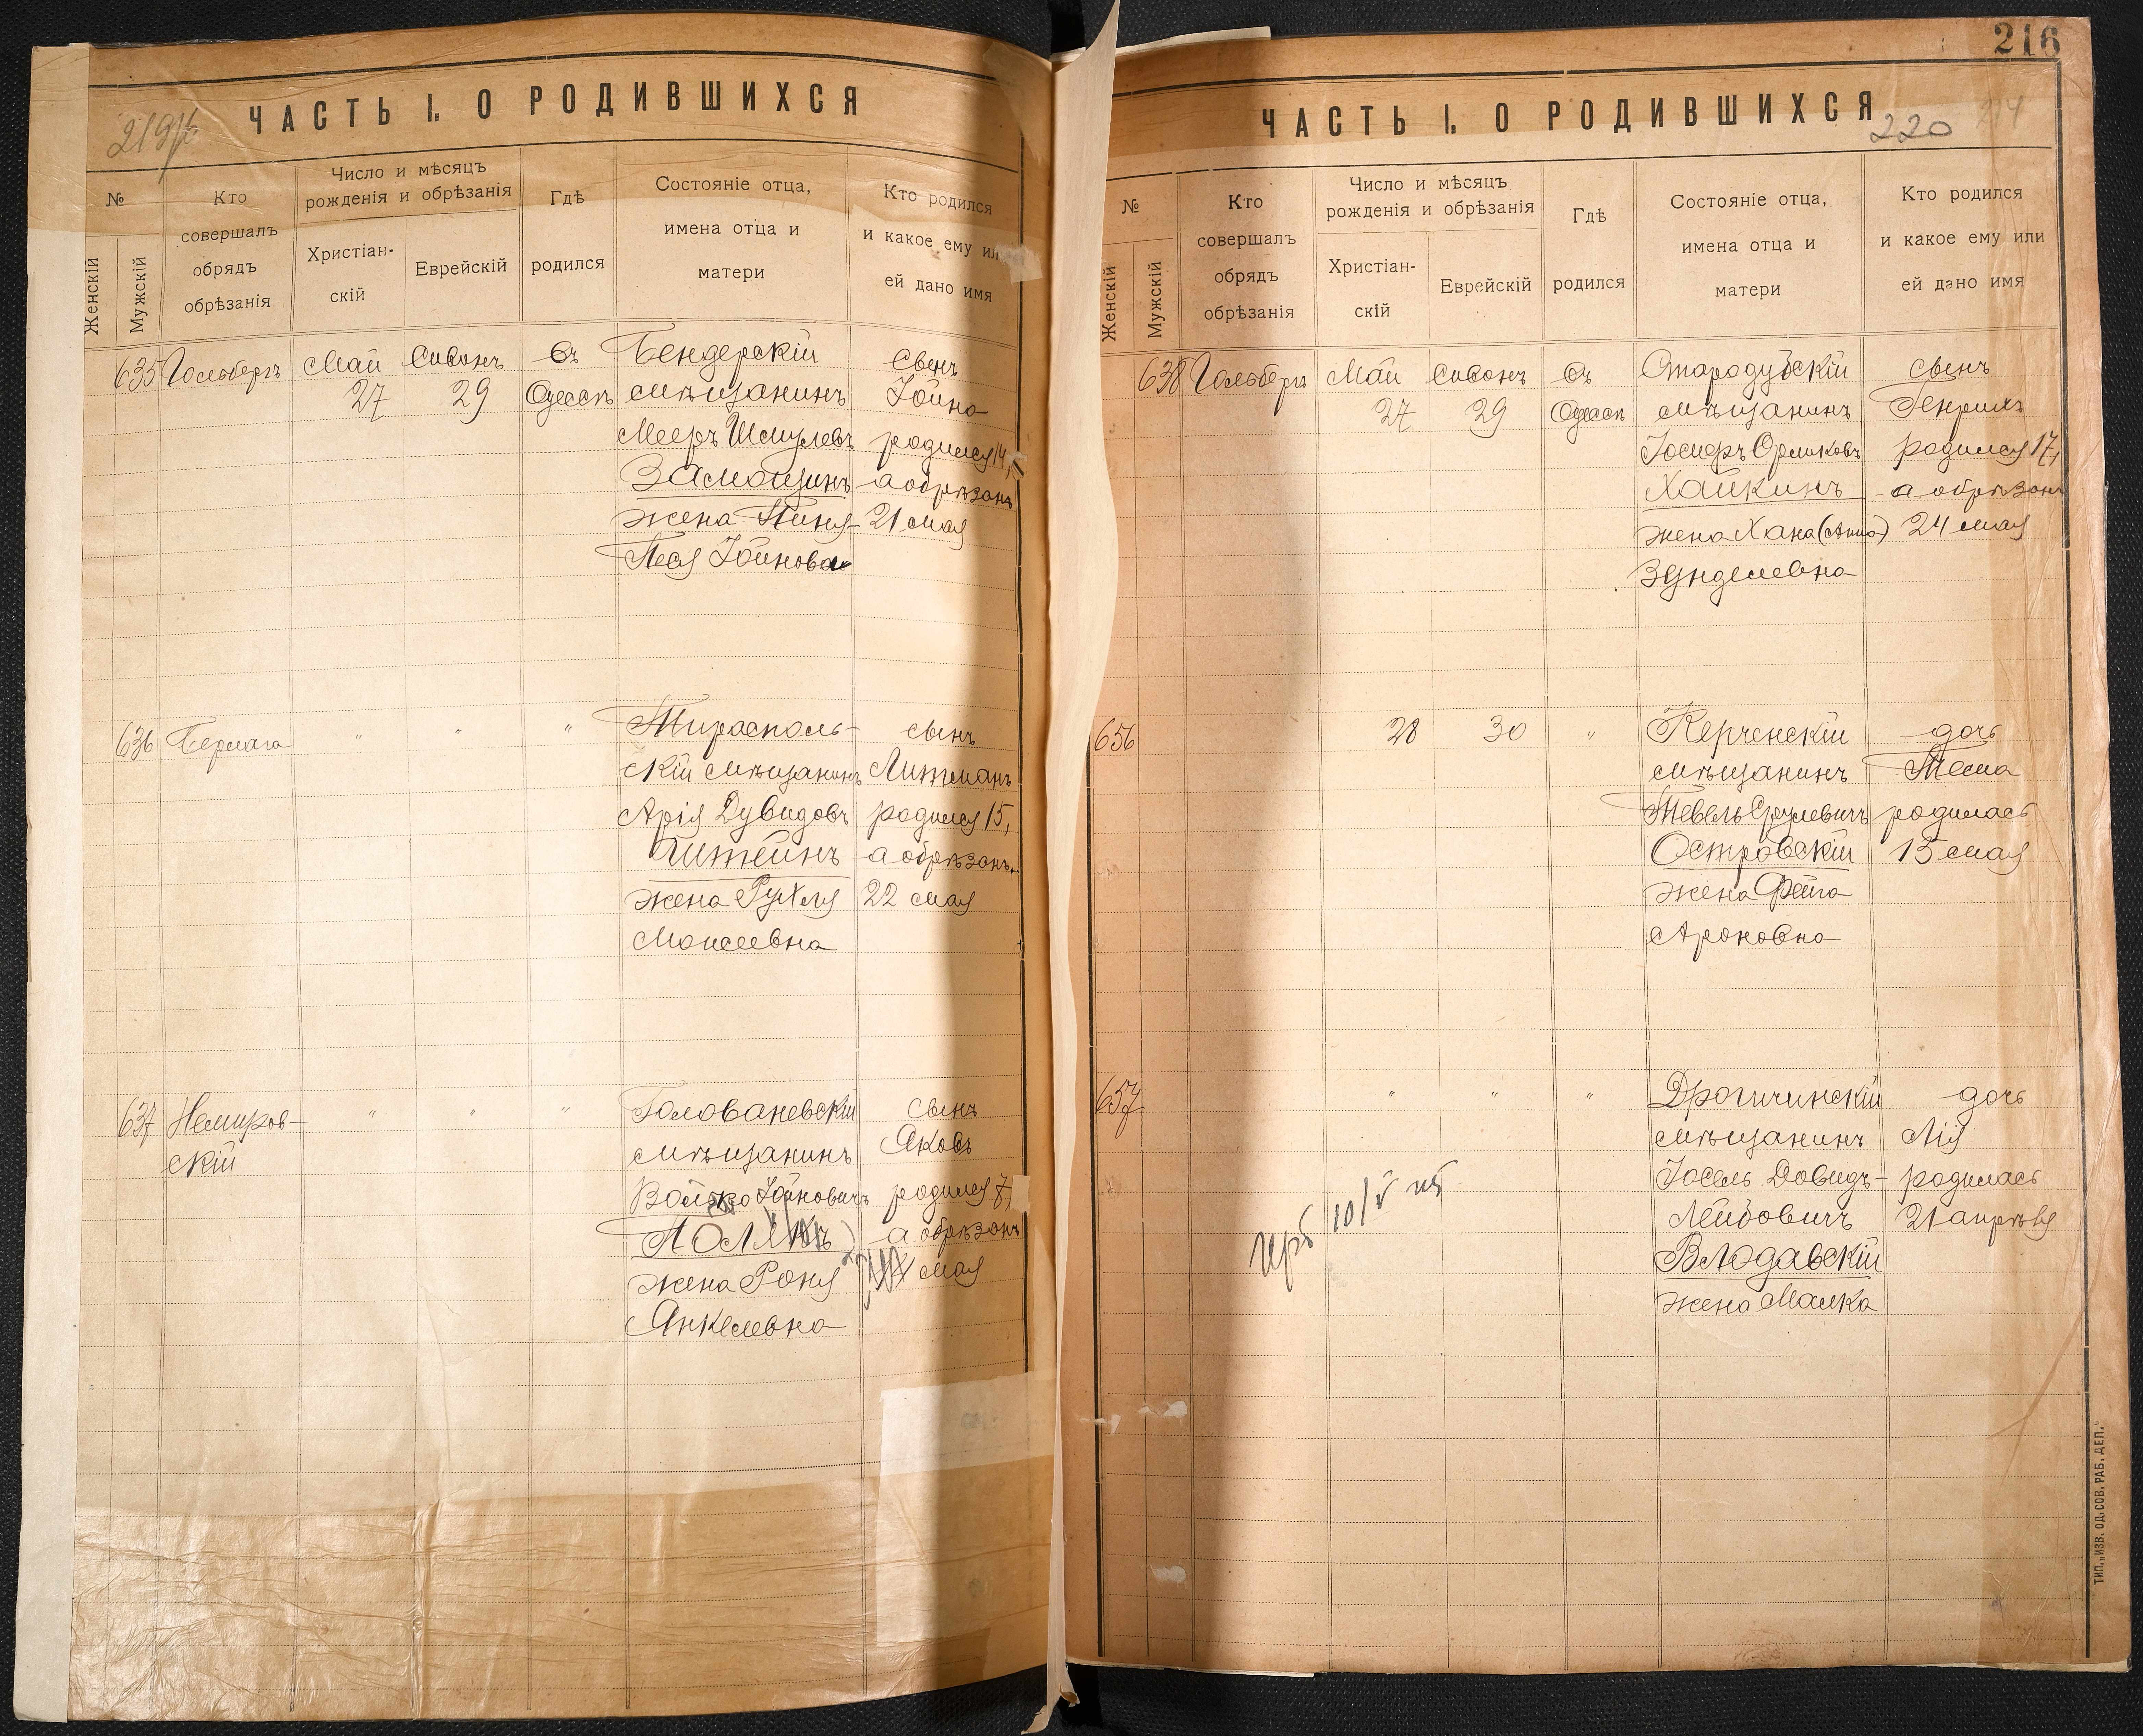 219об
ЧАСТЬ I. О РОДИВШИХСЯ
№
Женскій
Мужскій
Кто
совершалъ
обрядъ
обрѣзанія
Число и мѣсяцъ
рожденія и обрѣзанія
Христіан-
скій
Еврейскій
Гдѣ
родился
Состояніе отца,
имена отца и
матери
Кто родился
и какое ему или
ей дано имя
635
Гольбергъ
Май
27
Сивонъ
29
Въ
Одессѣ
Бендерскій
мѣщанинъ
Мееръ Шмулевъ
Замощинъ
жена
Песя Іойновна
сынъ
Іойна
родился 14,
а обрѣзанъ
21 мая
636
Бермага
"
"
"
Тирасполь-
скій мѣщанинъ
Арія Дувидовъ
Штейнъ
жена Рухля
Моисеевна
сынъ
Литманъ
родился 15,
а обрѣзанъ
22 мая
637
Немиров-
скій
"
"
"
Голованевскій
мѣщанинъ
Іойновичъ
жена Роня
Янкелевна
сынъ
Яковъ
родился 7,
а обрѣзанъ
мая
216
220
214
ЧАСТЬ I. О РОДИВШИХСЯ
№
Женскій
Мужскій
Кто
совершалъ
обрядъ
обрѣзанія
Число и мѣсяцъ
рожденія и обрѣзанія
Христіан-
скій
Еврейскій
Гдѣ
родился
Состояніе отца,
имена отца и
матери
Кто родился
и какое ему или
ей дано имя
638
Гольбергъ
Май
27
Сивонъ
29
Въ
Одессѣ
Стародубскій
мѣщанинъ
Іосифъ
Хайкинъ
жена Хана (Анна)
Зунделевна
сынъ
Генрихъ
родился 17,
а обрѣзанъ
24 мая
656
28
30
"
Керченскій
мѣщанинъ
Тевель Срулевичъ
Островскій
жена Фейга
Ароновна
дочь
Тема
родилась
15 мая
657
"
"
"
Дрогичинскій
мѣщанинъ
Іосель Довидъ-
Лейбовичъ
Влодавскій
жена Малка
дочь
Лія
родилась
21 апрѣля
ТИП. „ИЗВ. ОД. СОВ. РАБ. ДЕП."